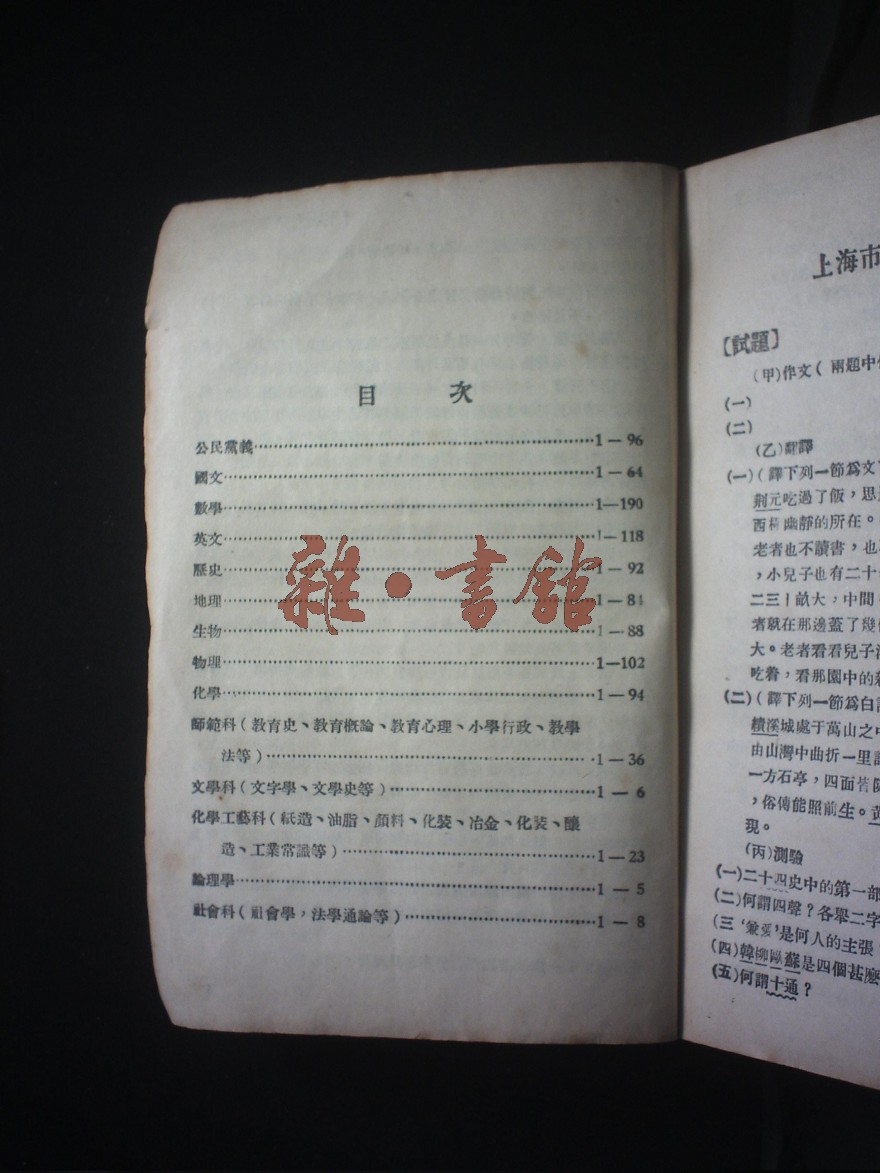 目 次
公民黨義………1—96
國文………1—64
數學………1—190
英文………1—118
歷史………1—92
地理………1—84
生物………1—88
物理………1—102
化學………1—94
師範科(教育史、教育概論、教育心理、小學行政、教學
法等)………1—36
文學科(文字學、文學史等)………1—6
化學工藝科(紙造、油脂、顏料、化裝、冶金、化裝、釀
造、工業常識等)………1—23
論理學………1—5
社會科(社會學,法學通論等)………1—8
雜·書館
上海市
【試題】
(甲)作文(兩題中
(一)
(二)
(乙)翻譯
(一)(譯下列一節爲文
荆元吃過了飯,思
西 幽靜的所在。
老者也不讀書,也
,小兒子也有二十
二三十畝大,中間
者就在那邊蓋了幾
大。老者看看兒子
吃着,看那園中的
(二)(譯下列一節爲白
績溪城處于萬山之中
由山灣中曲折一里
一方石亭,四面皆
,俗傳能照前生。
現。
(丙)測驗
(一)二十四史中的第一部
(二)何謂四聲?各舉二字
(三'兼愛'是何人的主張
(四)韓柳歐蘇是四個甚麽
(五)何謂十通?